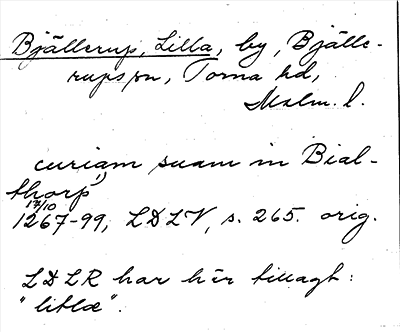 Bjällerup, Lilla, by, Bjälle-
rups sn, Torna hd,
Malm. l.
curiam suam in Bial-
thorp
17/10
1267-99, LDLV, s. 265. orig.
LDLR har här tillagt:
"litlæ".